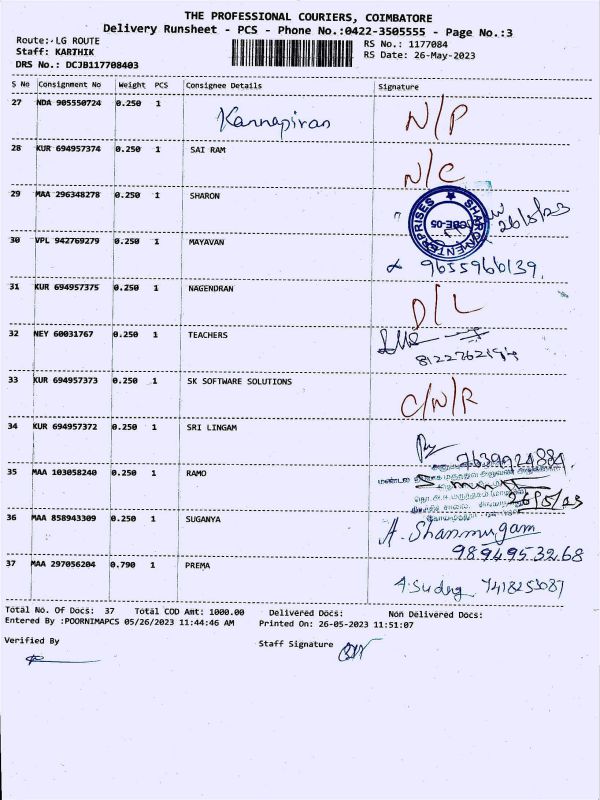 THE PROFESSIONAL COURIERS, COIMBATORE
Delivery Runsheet - PCS - Phone No.:0422-3505555 - Page No.:3
Route: LG ROUTE RS No.: 1177084
Staff: KARTHIK RS Date: 26-May-2023
DRS No.: DCJB117708403
S No Consignment No Weight PCS Consignee Details Signature
27 NDA 905550724 0.250 1 Kannapiran N/P
28 KUR 694957374 0.250 1 SAI RAM N/C
29 MAA 296348278 0.250 1 SHARON 26/5/23
ENTERPRISES CBE-05
30 VPL 942769279 0.250 1 MAYAVAN 9655960139.
31 KUR 694957375 0.250 1 NAGENDRAN D/L
32 NEY 60031767 0.250 1 TEACHERS
33 KUR 694957373 0.250 1 SK SOFTWARE SOLUTIONS C/N/R
34 KUR 694957372 0.250 1 SRI LINGAM 7639024884
35 MAA 103058240 0.250 1 RAMO
36 MAA 858943309 0.250 1 SUGANYA A. Shanmugam
9894953268
37 MAA 297056204 0.790 1 PREMA
Total No. Of Docs: 37 Total COD Amt: 1000.00 Delivered Docs: Non Delivered Docs:
Entered By :POORNIMAPCS 05/26/2023 11:44:46 AM Printed On: 26-05-2023 11:51:07
Verified By Staff Signature